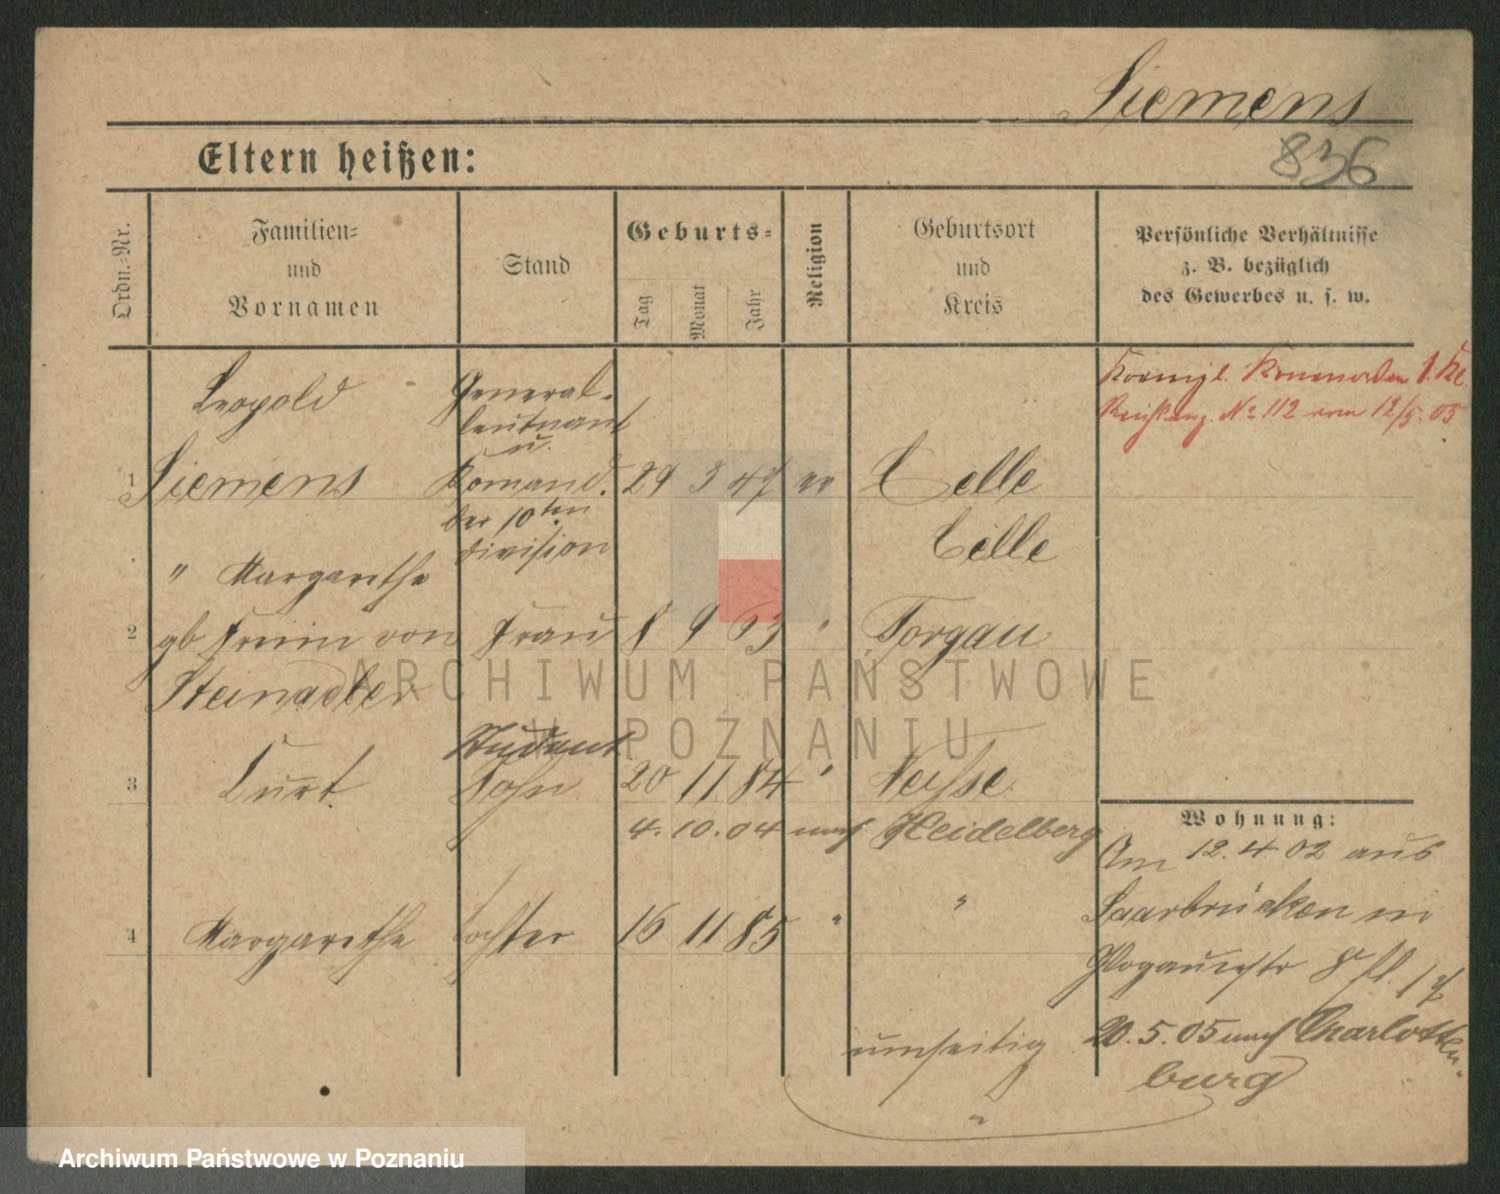 Siemens
Eltern heißen:
836
Ordn.-Nr.
Familien-
und
Vornamen
Stand
Geburts-
Tag
Monat
Jahr
Religion
Geburtsort
und
Kreis
Persönliche Verhältnisse
z. B. bezüglich
des Gewerbes u. s. w.
Leopold
General-
leutnant
u.
1 Siemens Komand. 29 3 47 ev Celle
der 10ten
division
Celle
" Margarethe
2 gb von Frau 8 9 63 " Torgau
Steinadler
Student
3 Curt Sohn 20 11 84 " Neysse
4. 10. 04 nach Heidelberg
4 Margarethe Tochter 16 11 85 " "
umseitig
1. Kl.
No 112 vom 12/5. 05
Wohnung:
Am 12. 4 02 aus
Saarbrücken in
8
20. 5. 05 nach Charlotten-
burg
ARCHIWUM PAŃSTWOWE
W POZNANIU
Archiwum Państwowe w Poznaniu